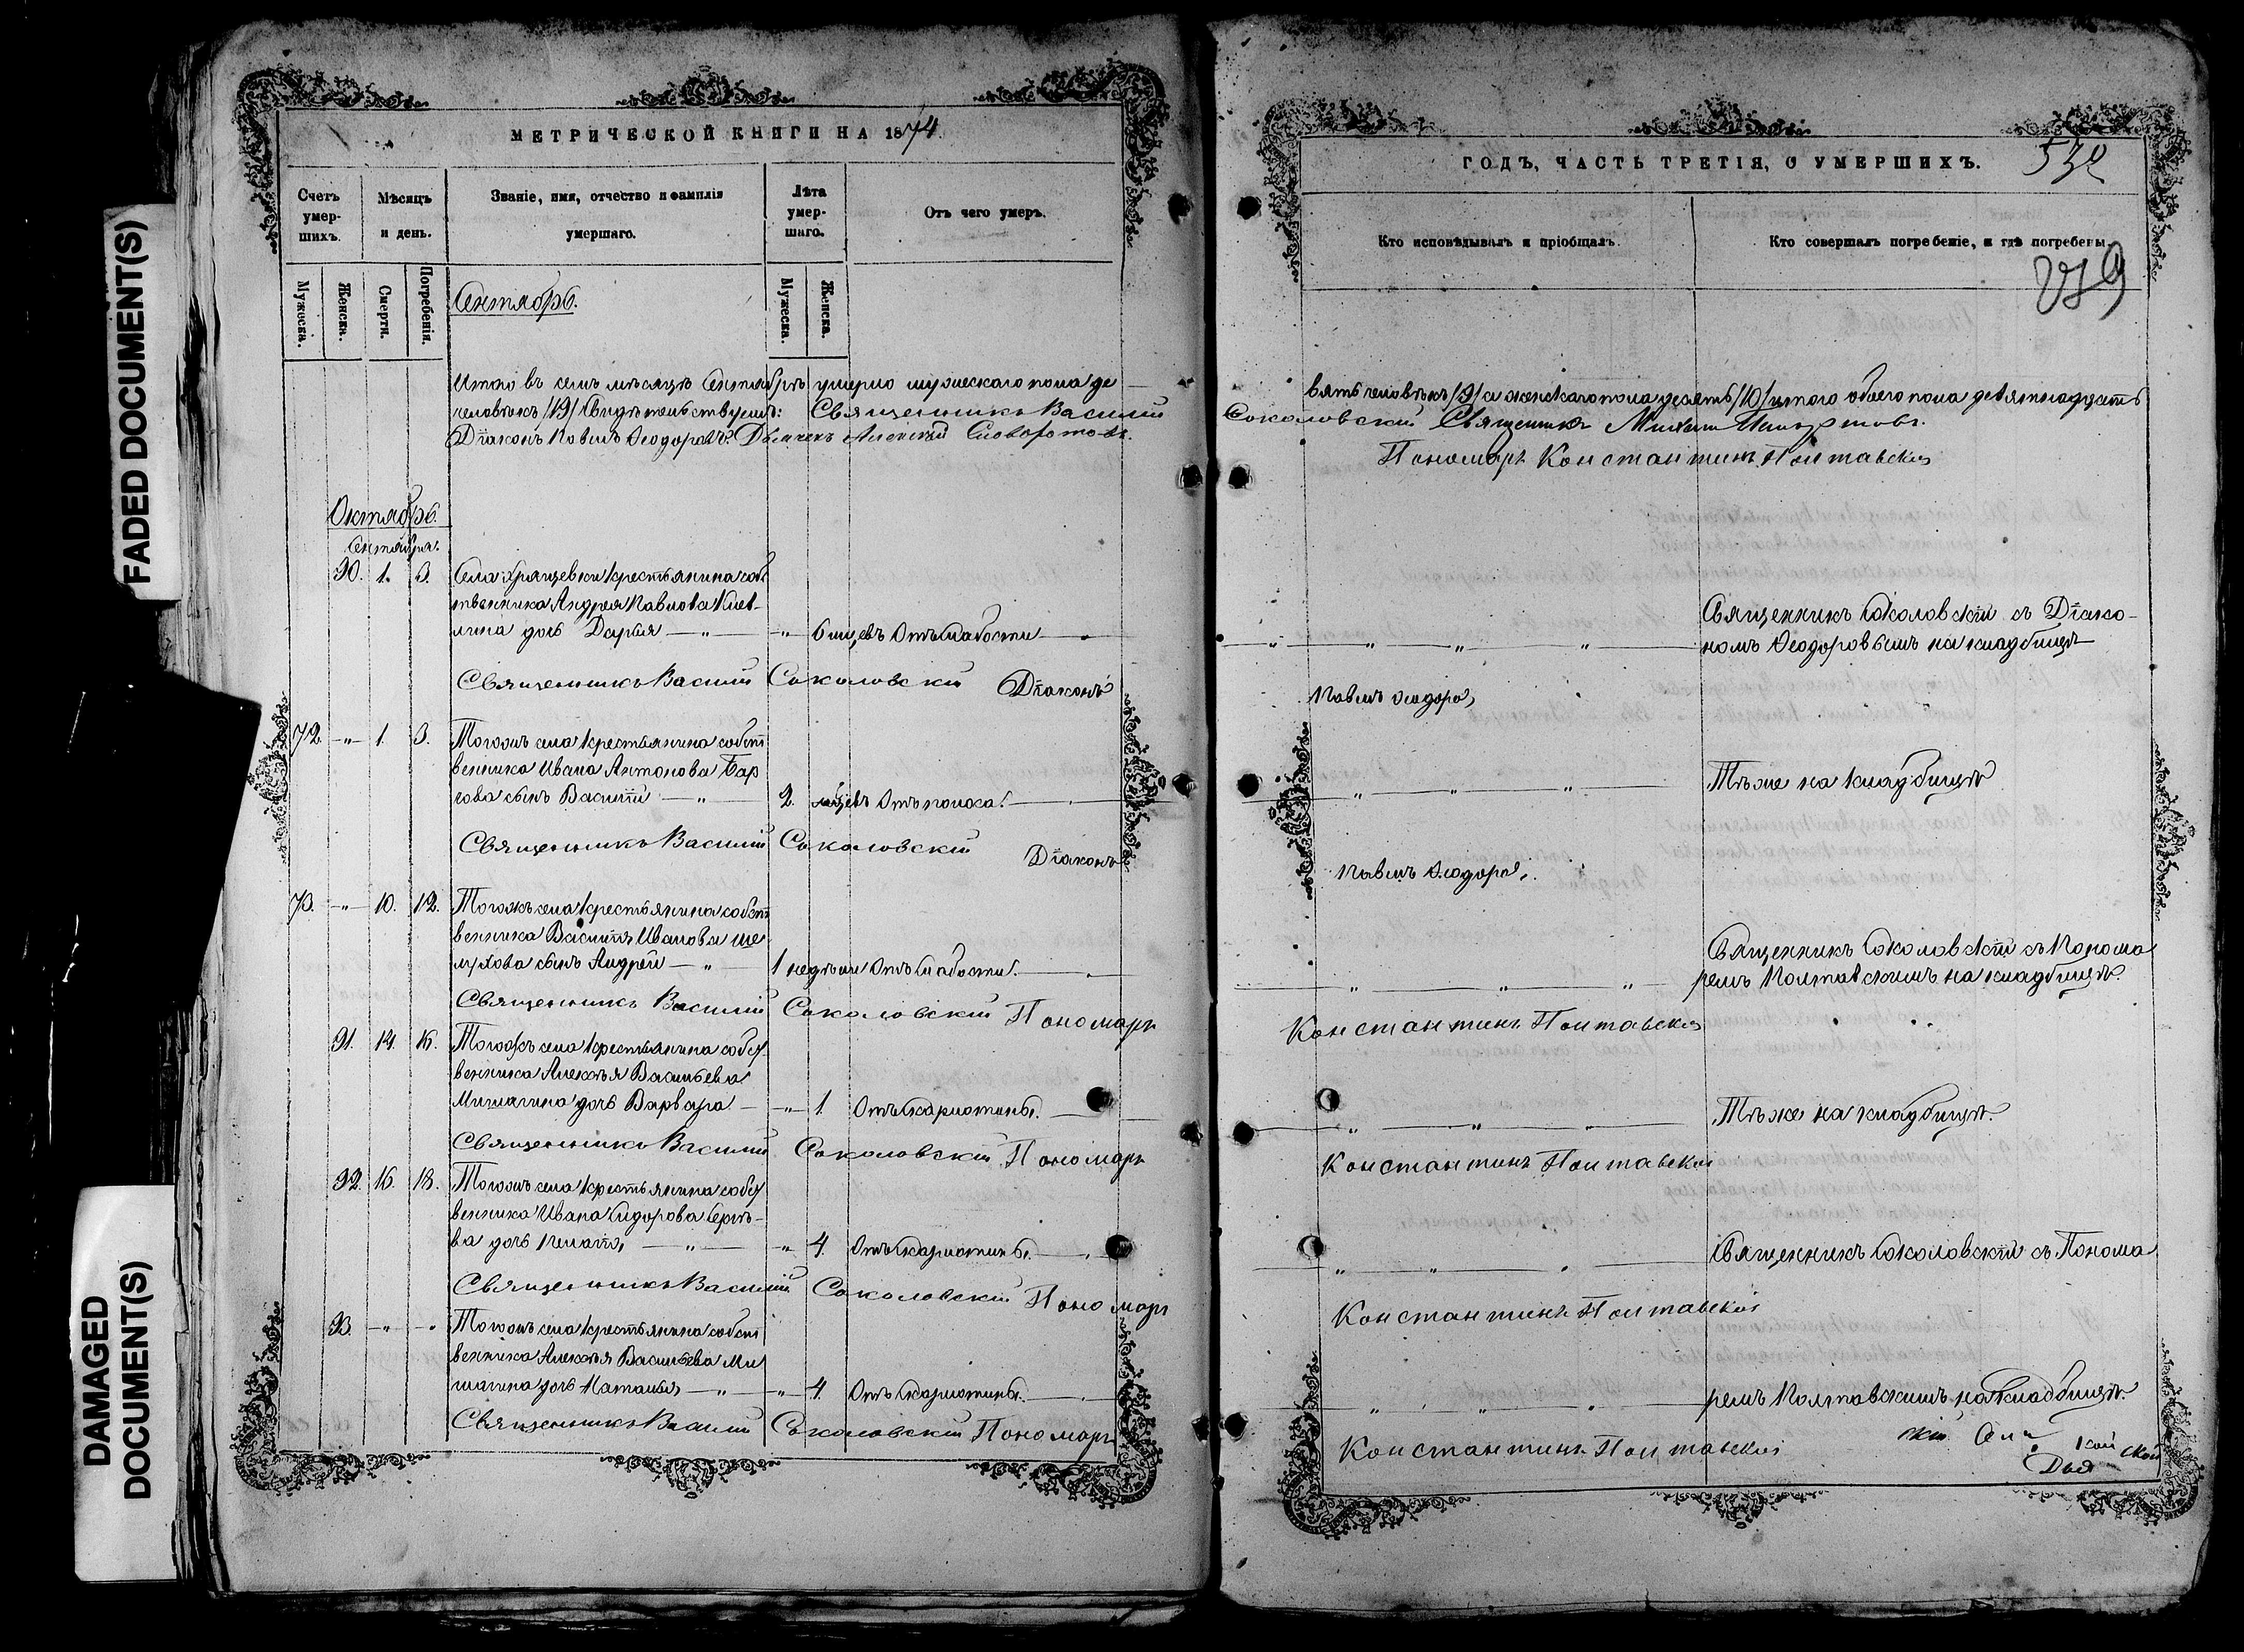 FADED DOCUMENT(S)
DAMAGED DOCUMENT(S)
МЕТРИЧЕСКОЙ КНИГИ НА 1874.
Счетъ умер-шихъ.
Мѣсяцъ и день.
Званіе, имя, отчество и фамилія умершаго.
Лѣта умер-шаго.
Отъ чего умеръ.
Мужеска.
Женска.
Смерти.
Погребенія.
Мужеска.
Женска.
Сентябрь.
Итого въ семъ мѣсяцѣ Сентябрѣ умерло мужескаго пола де
человѣкъ /9/ Свидѣтельствуемъ: Священникъ Василій
Діаконъ Павелъ Ѳеодоровъ. Дьячекъ Алексѣй
Октябрь.
Сентября.
90. 1. 3. Села Хрящевки крестьянина соб
ственника Андрея Павлова
дочь Дарья — „ — „ 6 мѣсцевъ Отъ слабости
Священникъ Василій Соколовскій Діаконъ
72. „ 1. 3. Тогожъ села крестьянина собст
венника Ивана Антонова
сынъ Василій — „ — 2. мѣсцевъ Отъ поноса.
Священникъ Василій Соколовскій Діаконъ
73. „ 10. 12. Тогожъ села крестьянина собст
венника Василія Иванова Ше
лухова сынъ Андрей — „ — 1 недѣли Отъ слабости.
Священникъ Василій Соколовскій Пономарь
91. 14. 16. Тогожъ села крестьянина собст
венника Алексѣя Васильева
Мишагина дочь Варвара — „ 1. Отъ скарлатины.
Священникъ Василій Соколовскій Пономарь
92. 16. 18. Тогожъ села крестьянина собст
венника Ивана Сидорова Сергѣе-
ва дочь — „ — „ 4. Отъ скарлатины.
Священникъ Василій Соколовскій Пономарь
93. „ „ Тогожъ села крестьянина собст
венника Алексѣя Васильева Ми
шагина дочь Наталья — „ — „ 4. Отъ скарлатины.
Священникъ Василій Соколовскій Пономарь
ГОДЪ, ЧАСТЬ ТРЕТІЯ, О УМЕРШИХЪ.
Кто исповѣдывалъ и пріобщалъ.
Кто совершалъ погребеніе, и гдѣ погребены.
вять человѣкъ /9/ а женскаго пола десять /10/ итого обоего пола девятнадцать
Соколовскій Священникъ Михаилъ
Пономарь Константинъ Полтавскій
Священникъ Соколовскій съ Діако-
номъ Ѳеодоровымъ на кладбищѣ
Павелъ Ѳеодоровъ
Тѣже на кладбищѣ
Павелъ Ѳеодоровъ
Священникъ Соколовскій съ Понома
ремъ Полтавскимъ на кладбищѣ.
Константинъ Полтавскій
Тѣже на кладбищѣ.
Константинъ Полтавскій
Священникъ Соколовскій съ Понома
Константинъ Полтавскій
ремъ Полтавскимъ на кладбищѣ.
Константинъ Полтавскій